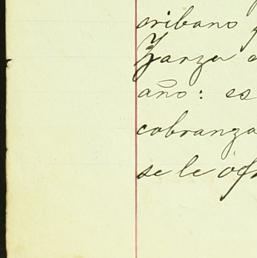 cribano
Zarza
año: es
cobranza
se le